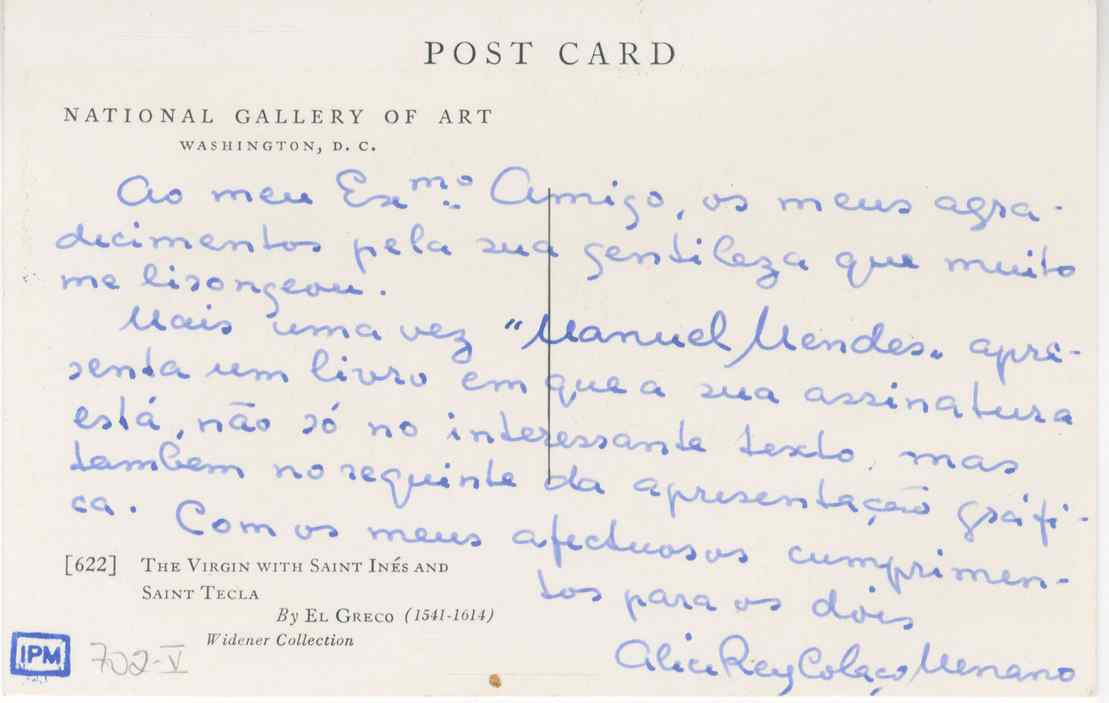 POST CARD
NATIONAL GALLERY OF ART
WASHINGTON, D. C.
Ao meu Exmo. Amigo, os meus agra-
decimentos pela sua gentileza que muito
me lisongeou.
Mais uma vez "Manuel Mendes" apre-
senta um livro em que a sua assinatura
está, não só no interessante texto, mas
tambem no requinte da apresentação gráfi-
ca. Com os meus afectuosos cumprimen-
tos para os dois
Alice Rey Colaço Menano
[622] THE VIRGIN WITH SAINT INÉS AND
SAINT TECLA
By EL GRECO (1541-1614)
Widener Collection
IPM 702-V